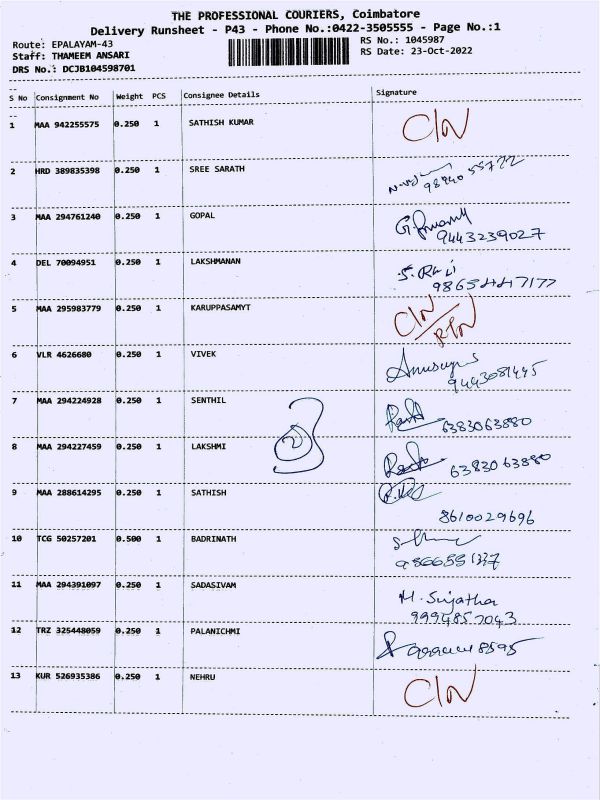 THE PROFESSIONAL COURIERS, Coimbatore
Delivery Runsheet - P43 - Phone No.:0422-3505555 - Page No.:1
Route: EPALAYAM-43 RS No.: 1045987
Staff: THAMEEM ANSARI RS Date: 23-Oct-2022
DRS No.: DCJB104598701
S No Consignment No Weight PCS Consignee Details Signature
1 MAA 942255575 0.250 1 SATHISH KUMAR C/N
2 HRD 389835398 0.250 1 SREE SARATH
3 MAA 294761240 0.250 1 GOPAL
9443239027
4 DEL 70094951 0.250 1 LAKSHMANAN S. Raji
9865447177
5 MAA 295983779 0.250 1 KARUPPASAMYT C/N
6 VLR 4626680 0.250 1 VIVEK
9443081445
7 MAA 294224928 0.250 1 SENTHIL 6383063880
8 MAA 294227459 0.250 1 LAKSHMI 6383063880
9 MAA 288614295 0.250 1 SATHISH
8610029696
10 TCG 50257201 0.500 1 BADRINATH
11 MAA 294391097 0.250 1 SADASIVAM M. Sujatha
9994857043
12 TRZ 325448059 0.250 1 PALANICHMI
13 KUR 526935386 0.250 1 NEHRU C/N